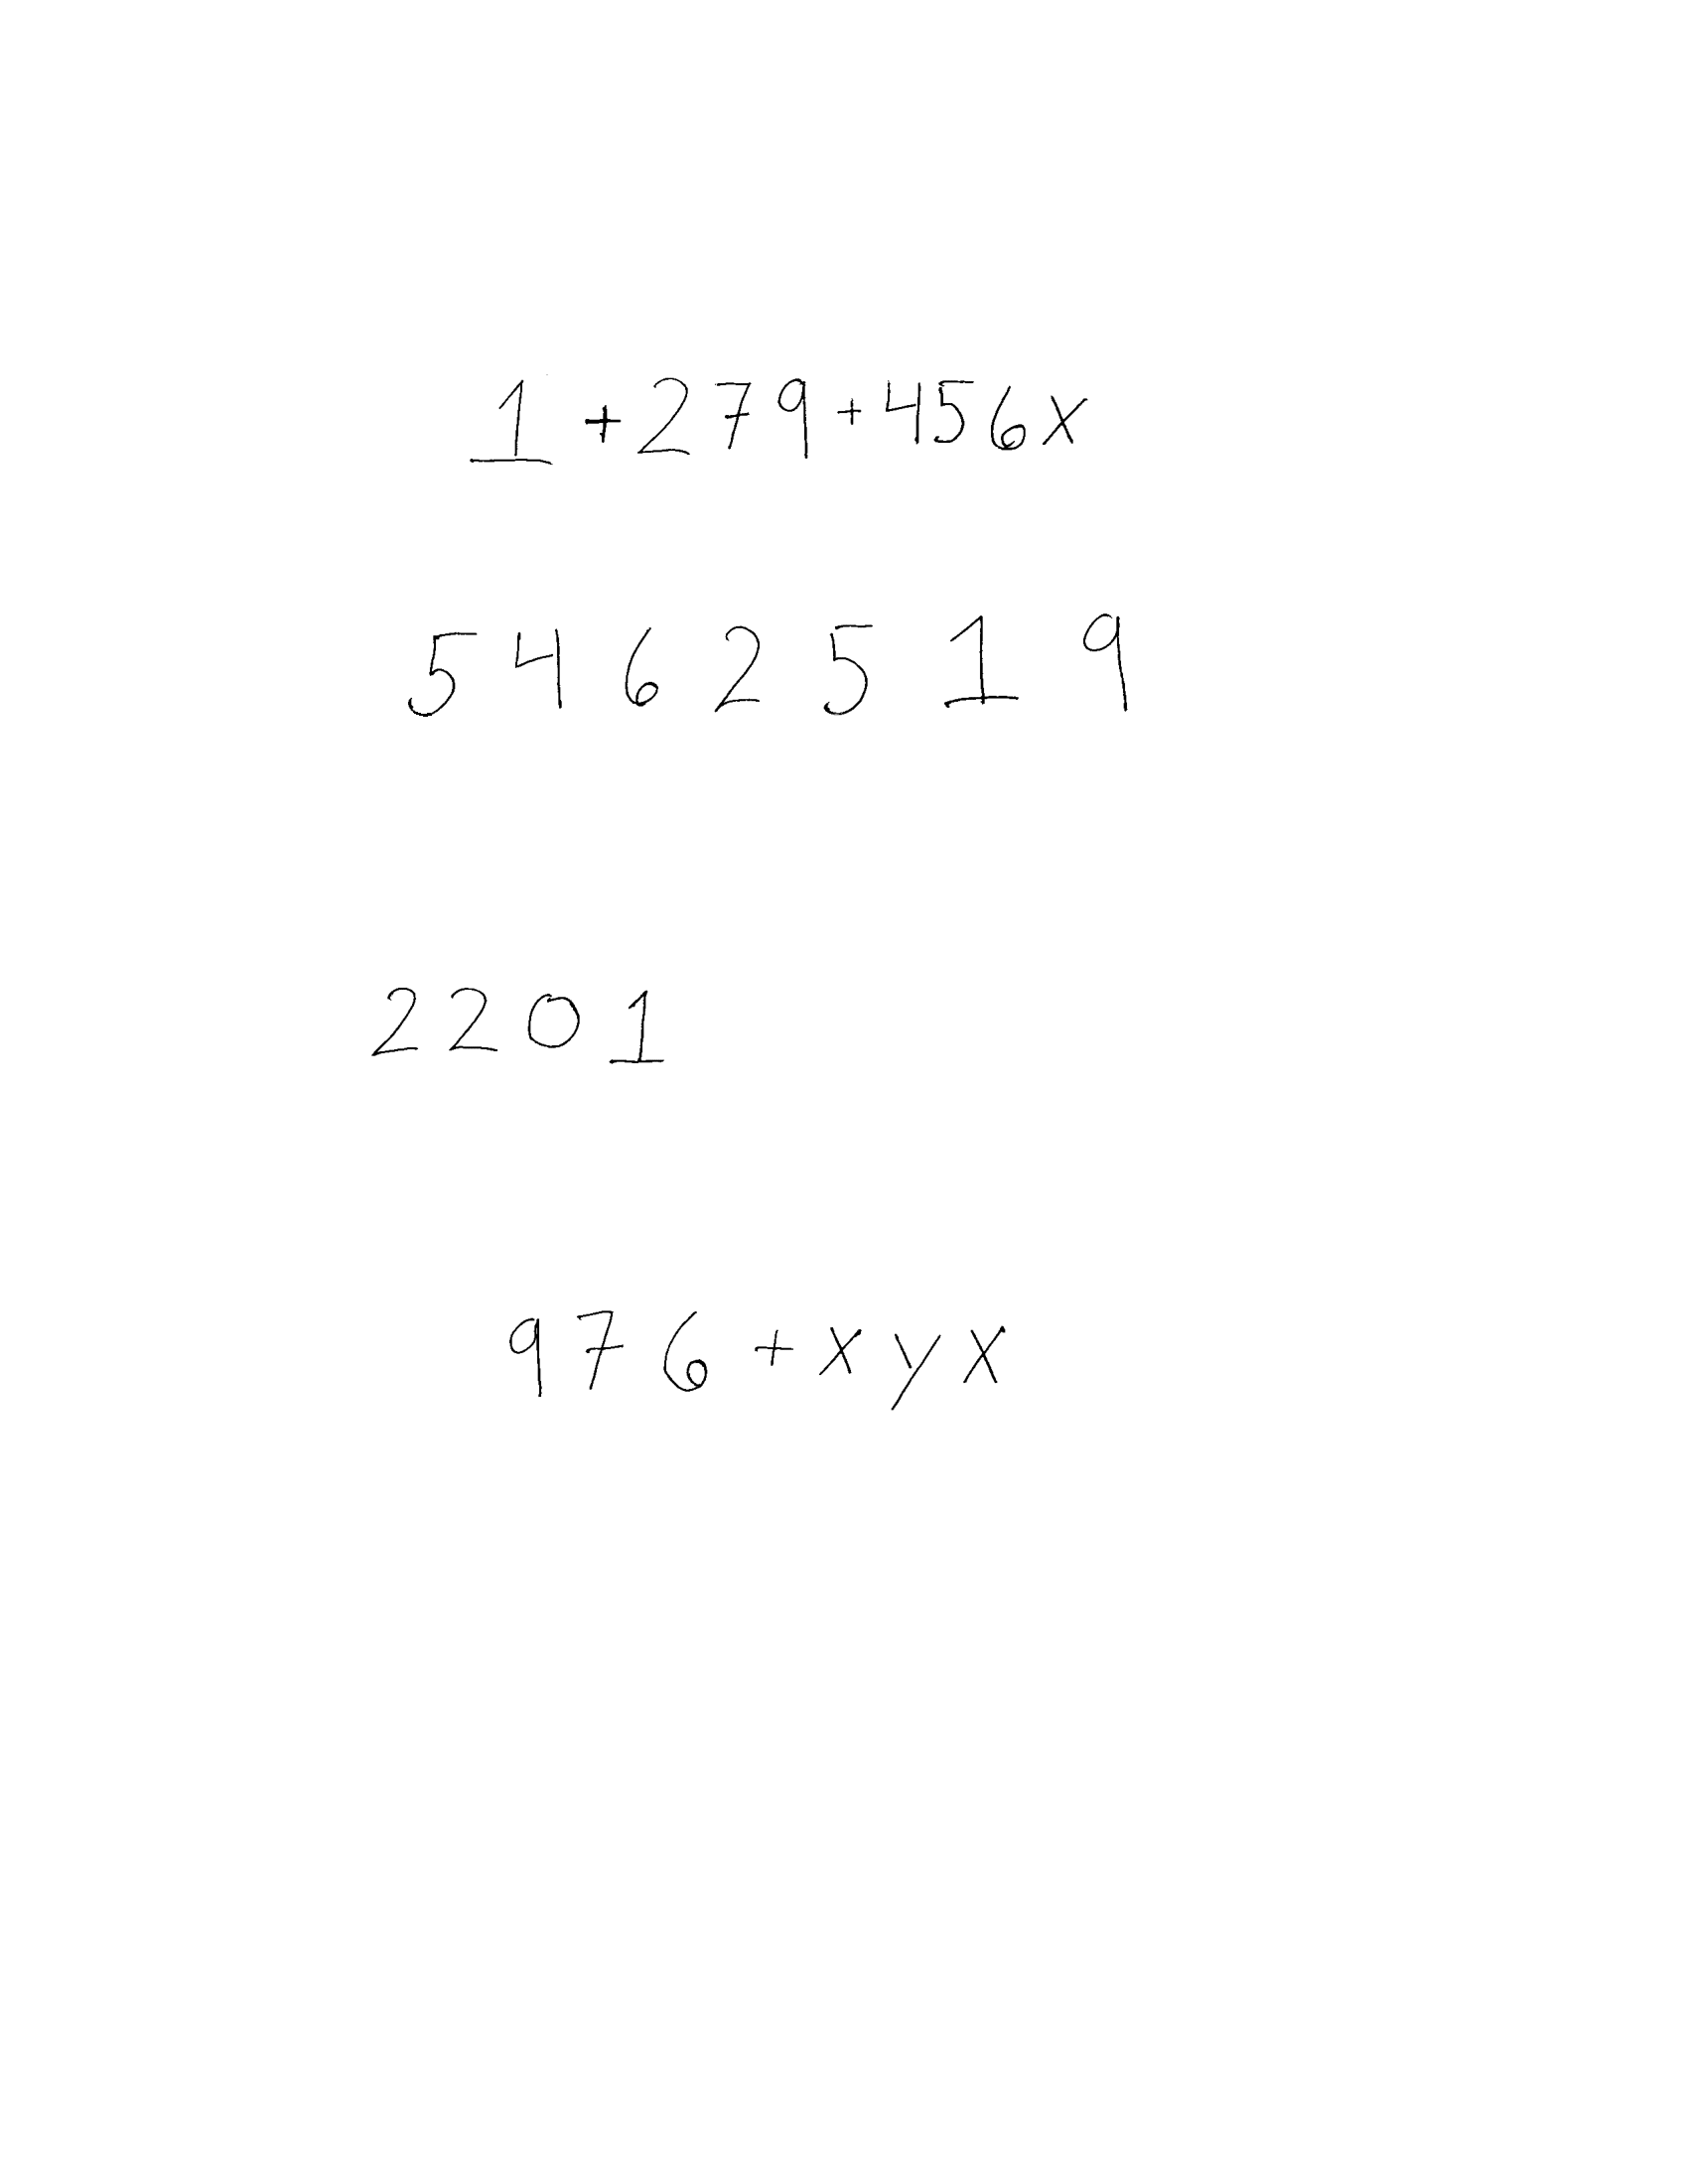 1 + 279 + 456x
5 4 6 2 5 1 9
2 2 0 1
9 7 6 + x y x